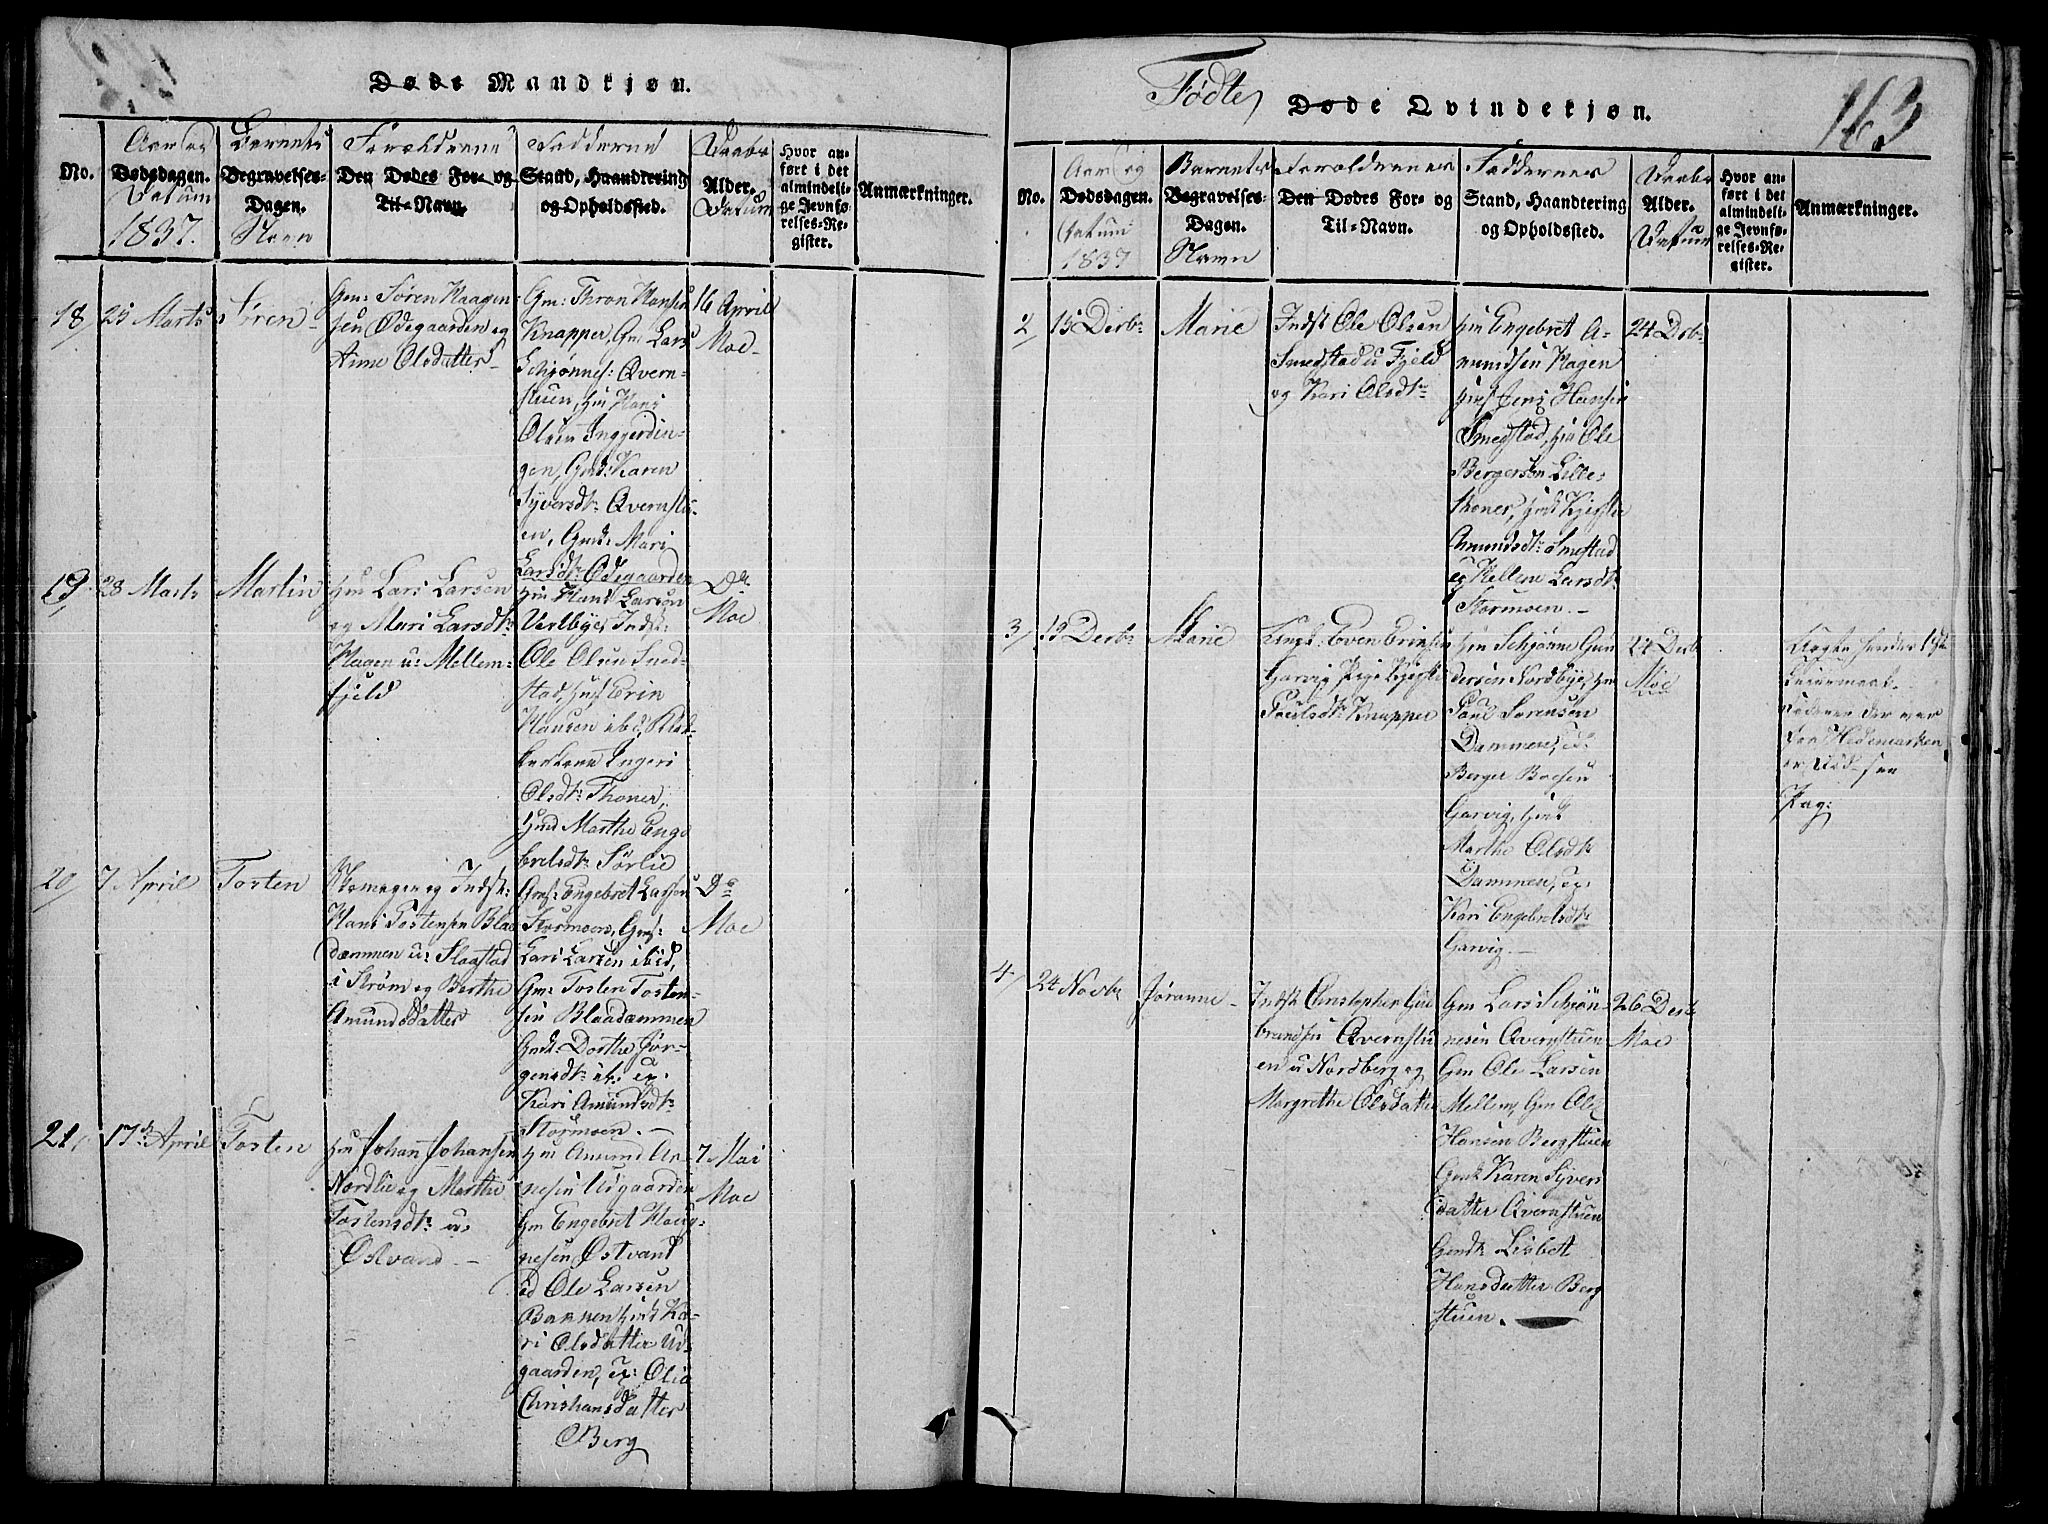 Døde Mandkjøn.
No.
Aar og
Dødsdagen.
Datum
1837.
Barnets
Begravelses-
Dagen.
Navn
Forældrene
Den Dødes For- og
Til-Navn.
Fadderne
Stand, Haandtering
og Opholdssted.
Daabs
Alder.
Datum
Hvor an-
ført i det
almindeli-
ge Jevnfø-
relses-Re-
gister.
Anmærkninger.
18
25 Marts
Søren
Gm: Søren Haagen-
sen Ødegaarden og
Anne Olsdatter
Gm: Thron Hansen
Knapper, Gm: Lars
Schjønnes: Qvern-
stuen, Hm Hans
Olsen Inggjerdin-
gen, Gmk: Karen
Syversdtr: Qvernstu-
en, Gmk: Mari
Larsdtr Ødegaarden
16 April
Moe
19
28 Marts
Martin
Hm Lars Larsen
og Mari Larsdtr
Hagen u: Mellem-
fjeld
Hm Hans Larsen
Verlbye, Indst:
Ole Olsen Smed-
stad,
Hansen ibd,
Ingeri
Olsdtr: Thoner,
Marthe Enge
bretsdtr Sørlie
Do
Moe
20
7 April
Tosten
og Indst:
Hans Tostensen Blaa
dammen u: Slaastad
i Strøm og Berthe
Amundsdatter
Gm: Engebret Larsen
Stormoen, Gm:
Lars Larsen ibid,
Gm: Tosten Tosten-
sen Blaadammen
Gmk: Dorthe Jør-
gensdtr ib: og
Kari Amundsdtr
Stormoen.
Do
Moe
21
17de April
Tosten
Hm Johan Johansen
Nordlie og Marthe
Tostensdtr u:
Østvand
Hm Amund Ar
nesen Udgaarden
Gm Engebret Haag-
nesen Østvand
Ole Larsen
Bakken Hmk Ka-
ri Olsdatter Ud-
gaarden, og Olia
Christiansdatter
Berg
7 Mai
Moe
Fødte
Døde Qvindekjøn.
163
No.
Aar og
Dødsdagen.
Datum
1837
Barnets
Begravelses-
Dagen.
Navn
Forældrenes
Den Dødes For- og
Til-Navn.
Faddernes
Stand, Haandtering
og Opholdssted.
Daabs
Alder.
Datum
Hvor an-
ført i det
almindeli-
ge Jevnfø-
relses-Re-
gister.
Anmærkninger.
2
15 Decbr
Marie
Indst Ole Olsen
Smedstad u Fjeld
og Kari Olsdtr
Hm Engebret A-
mundsen Hagen
Jens Hansen
Smestad, Hm Ole
Bergersen Lille-
thoner, Hmk Kjersti
Amundsdtr Smestad
og Hellene Larsdtr
Stormoen.
24 Decbr
3
19 Decbr
Marie
Ungk: Even
Garvig Pige Kjersti
Poulsdtr Knapper
Hm Schjønne Gun
dersen Nordbye, Hm
Paul Sørensen
Dammen,
Berger Boesen
Garvig, Hmk
Marthe Olsdtr
Dammen, og
Kari Engebretsdtr
Garvig.
24 Decbr
Moe
Begte hendes 1ste
Leiermaal.
Faderen der var
fra Hedemarken
er Død see
Pag:
4
24 Novbr
Jøranne
Indst Christopher Gul
brandsen Qvernstu
en u Nordberg og
Margrethe Olsdatter
Gm Lars Schjøn-
nesen Qvernstuen
Gm Ole Larsen
Mellem, Gm Ole
Hansen Bergstuen
Gmk Karen Syvers
datter Qvernstuen
Gmk Lisbet
Hansdatter Berg
stuen.
26 Decbr
Moe